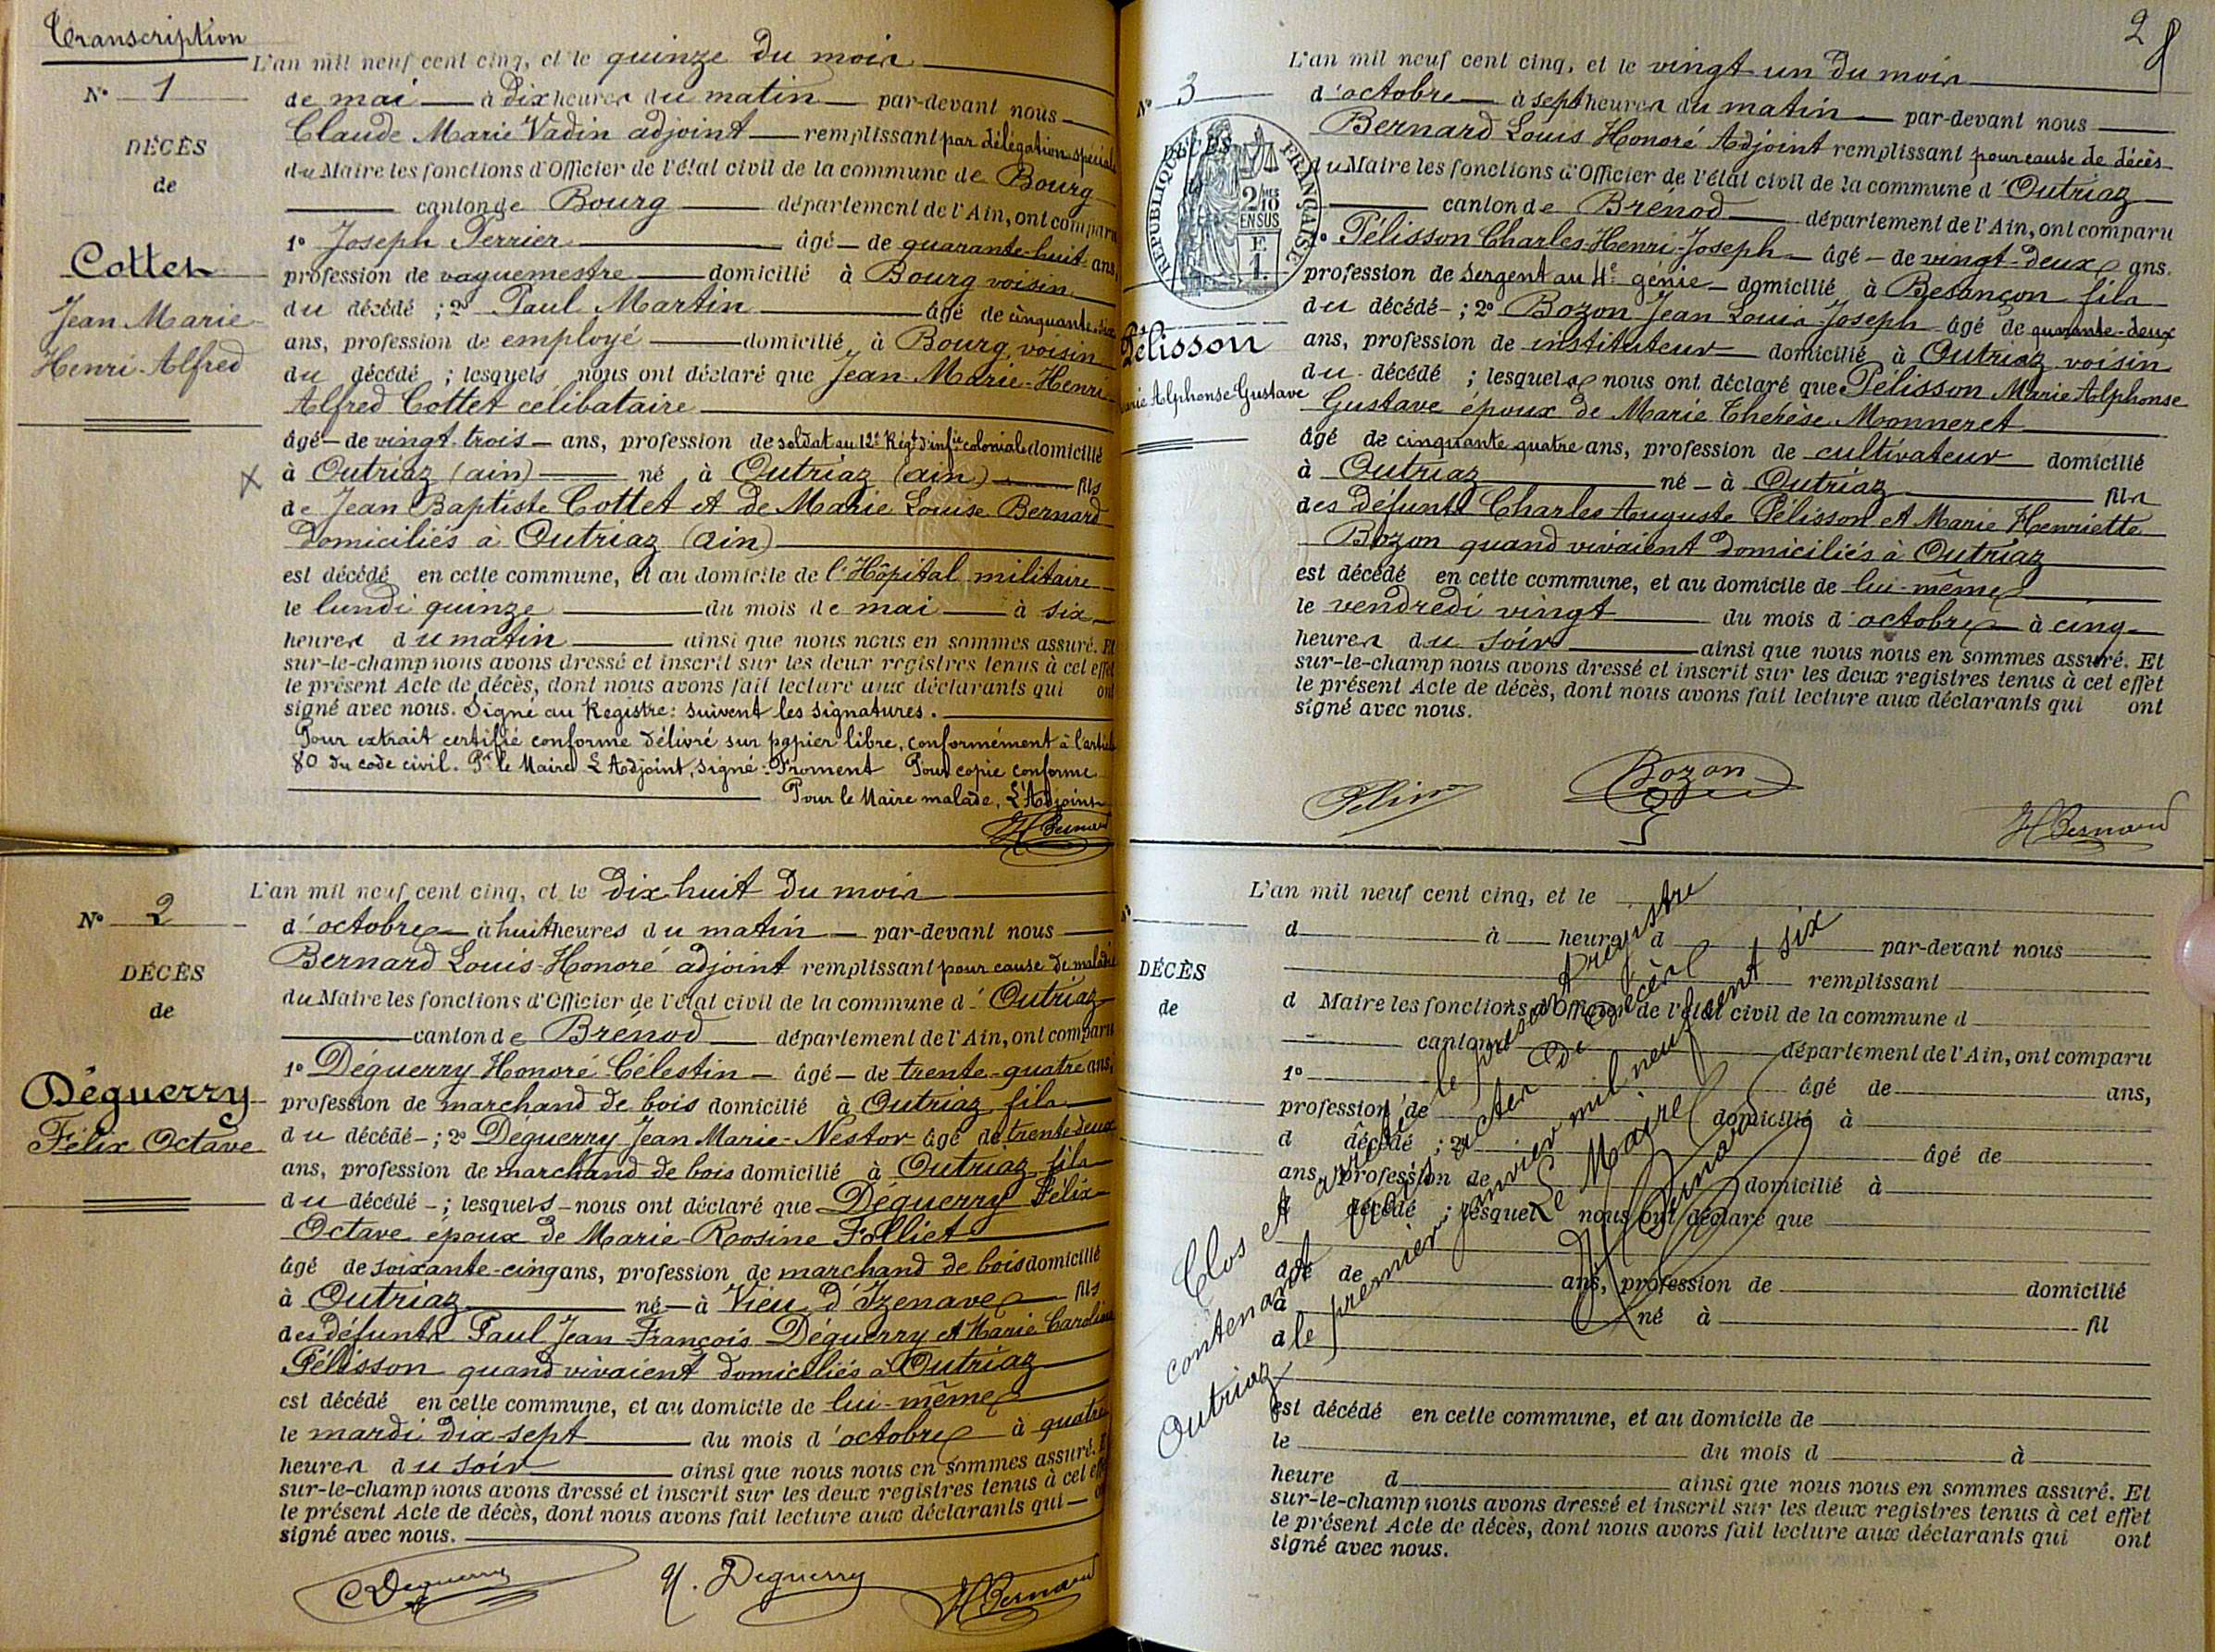 Transcription
N° 1
DÉCÈS
de
Cottet
Jean Marie
Henri Alfred
L'an mil neuf cent cinq, et le quinze du mois
de mai à dix heures du matin par-devant nous
Claude Marie Vadin adjoint remplissant par délégation spéciale
du Maire les fonctions d'Officier de l'état civil de la commune de Bourg
canton de Bourg département de l'Ain, ont comparu
1° Joseph Perrier âgé de quarante-huit ans,
profession de vaguemestre domicilié à Bourg voisin
du décédé ; 2° Paul Martin âgé de cinquante-
ans, profession de employé domicilié à Bourg, voisin
du décédé ; lesquels nous ont déclaré que Jean-Marie-Henri-
Alfred Cottet célibataire
âgé de vingt-trois ans, profession de soldat au 12e Régt d'infie coloniale domicilié
à Outriaz (ain) né à Outriaz (ain) fils
de Jean Baptiste Cottet et de Marie Louise Bernard
domiciliés à Outriaz (ain)
est décédé en cette commune, et au domicile de l'Hôpital militaire
le lundi quinze du mois de mai à six
heures du matin ainsi que nous nous en sommes assuré. Et
sur-le-champ nous avons dressé et inscrit sur les deux registres tenus à cet effet
le présent Acte de décès, dont nous avons fait lecture aux déclarants qui ont
signé avec nous. Signé au Registre : suivent les signatures.
Pour extrait certifié conforme délivré sur papier libre, conformément à l'article
80 du code civil. Pr le Maire L'Adjoint, signé : Froment Pour copie conforme
Pour le Maire malade, L'Adjoint
H Bernard
N° 2
DÉCÈS
de
Déguerry
Félix Octave
L'an mil neuf cent cinq, et le dix huit du mois
d'octobre à huit heures du matin par-devant nous
Bernard Louis Honoré adjoint remplissant pour cause de maladie
du Maire les fonctions d'Officier de l'état civil de la commune d'Outriaz
canton de Brénod département de l'Ain, ont comparu
1° Déguerry Honoré Célestin âgé de trente-quatre ans,
profession de marchand de bois domicilié à Outriaz fils
du décédé ; 2° Déguerry Jean Marie-Nestor âgé de trente-deux
ans, profession de marchand de bois domicilié à Outriaz fils
du décédé ; lesquels nous ont déclaré que Déguerry Félix
Octave époux de Marie-Rosine Folliet
âgé de soixante-cinq ans, profession de marchand de bois domicilié
à Outriaz né à Vieu d'Izenave fils
des défunts Paul Jean-François Déguerry et Marie Caroline
Pélisson quand vivaient domiciliés à Outriaz
est décédé en cette commune, et au domicile de lui-même
le mardi dix-sept du mois d'octobre à quatre
heures du soir ainsi que nous nous en sommes assuré. E
sur-le-champ nous avons dressé et inscrit sur les deux registres tenus à cet effet
le présent Acte de décès, dont nous avons fait lecture aux déclarants qui
signé avec nous.
Deguerry H. Deguerry H Bernard
2
N° 3
DÉCÈS
de
RÉPUBLIQUE FRANÇAISE
2 MES
10
EN SUS
F.
1.
Pélisson
Marie Alphonse Gustave
L'an mil neuf cent cinq, et le vingt-un du mois
d'octobre à sept heures du matin par-devant nous
Bernard Louis Honoré Adjoint remplissant pour cause de décès
du Maire les fonctions d'Officier de l'état civil de la commune d'Outriaz
canton de Brenod département de l'Ain, ont comparu
1° Pélisson Charles-Henri-Joseph âgé de vingt-deux ans.
profession de sergent au 4e génie domicilié à Besançon fils
du décédé ; 2° Bozon Jean Louis Joseph âgé de quarante-deux
ans, profession de instituteur domicilié à Outriaz voisin
du décédé ; lesquels nous ont déclaré que Pélisson Marie Alphonse
Gustave époux de Marie Thérèse Monneret
âgé de cinquante quatre ans, profession de cultivateur domicilié
à Outriaz né à Outriaz fils
des défunts Charles Auguste Pélisson et Marie Henriette
Bozon quand vivaient domiciliés à Outriaz
est décédé en cette commune, et au domicile de lui-même
le vendredi vingt du mois d'octobre à cinq
heures du soir ainsi que nous nous en sommes assuré. Et
sur-le-champ nous avons dressé et inscrit sur les deux registres tenus à cet effet
le présent Acte de décès, dont nous avons fait lecture aux déclarants qui ont
signé avec nous.
Bozon H Bernard
N°
DÉCÈS
de
L'an mil neuf cent cinq, et le
d à heure d par-devant nous
remplissant
d Maire les fonctions d'Officier de l'état civil de la commune d
canton d département de l'Ain, ont comparu
1° âgé de ans,
profession de domicilié à
d décédé ; 2° âgé de
ans, profession de domicilié à
d décédé ; lesquel nous ont déclaré que
âgé de ans, profession de domicilié
à né à fil
d
est décédé en cette commune, et au domicile de
le du mois d à
heure d ainsi que nous nous en sommes assuré. Et
sur-le-champ nous avons dressé et inscrit sur les deux registres tenus à cet effet
le présent Acte de décès, dont nous avons fait lecture aux déclarants qui ont
signé avec nous.
Clos et arrêté le présent registre
contenant trois actes de décès
Outriaz le premier janvier mil neuf cent six
Le Maire
H Bernard